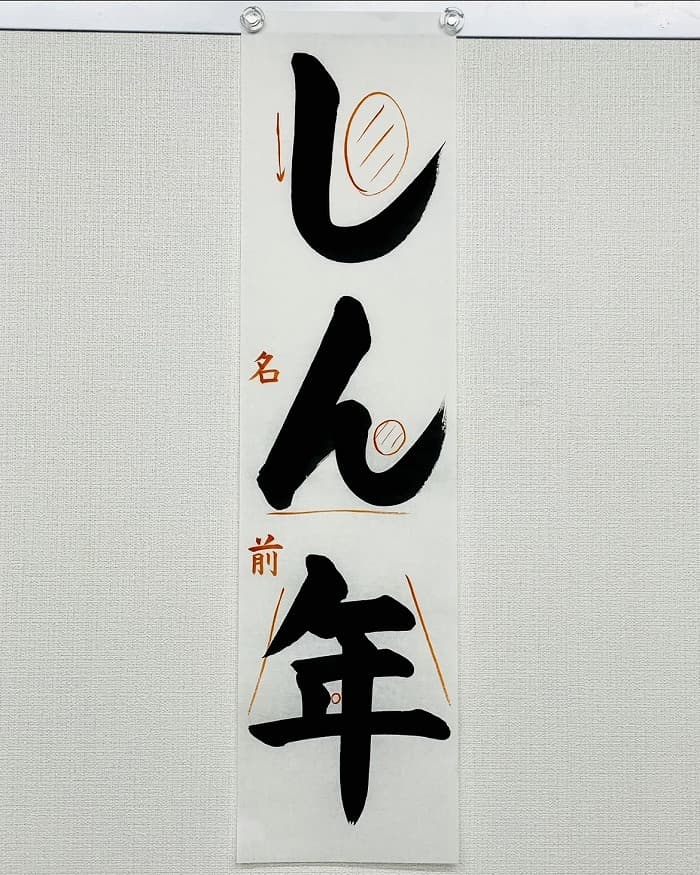 しん年
名前